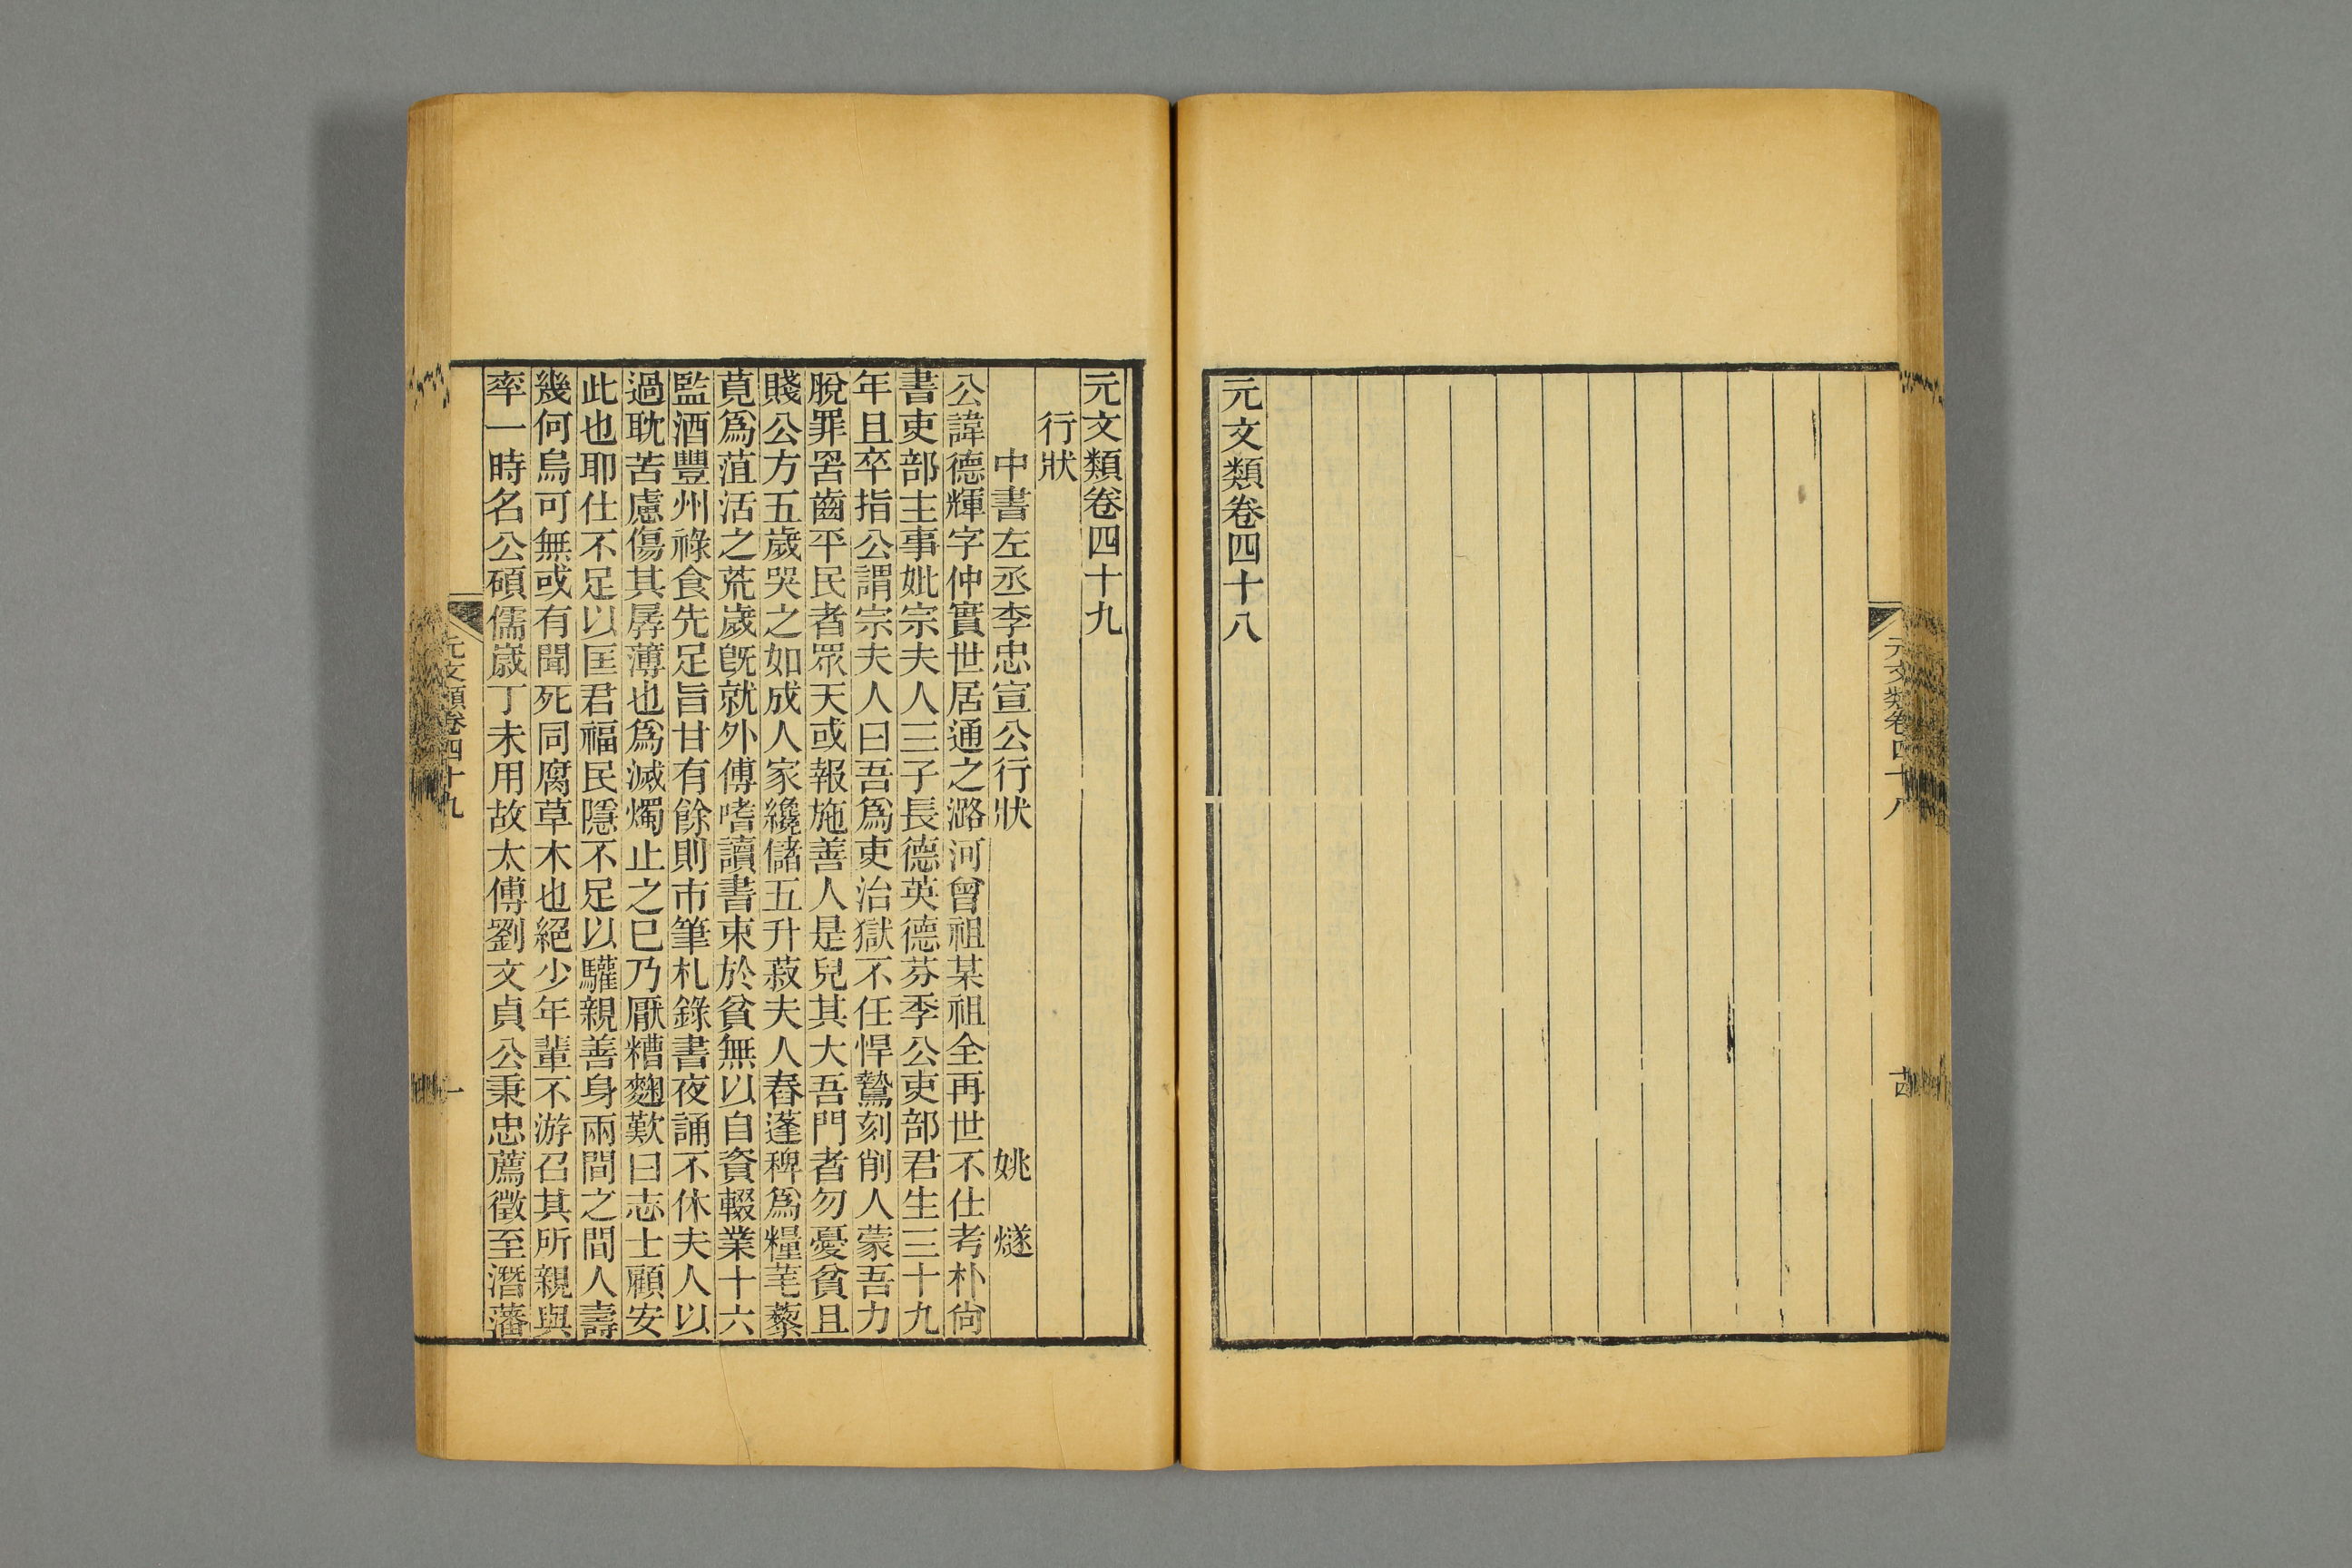 元文類卷四十八
元文類卷四十八
古
元文類卷四十九
行狀
中書左丞李忠宣公行狀 姚燧
公諱德輝字仲實世居通之潞河曾祖某祖全再世不仕考朴尙
書吏部主事妣宗夫人三子長德英德芬季公吏部君生三十九
年且卒指公謂宗夫人曰吾爲吏治獄不任悍鷙刻削人蒙吾力
脫罪罟齒平民者眾天或報施善人是兒其大吾門者勿憂貧且
賤公方五歲哭之如成人家纔儲五升菽夫人舂蓬稗爲糧芼藜
莧爲菹活之荒歲旣就外傅嗜讀書束於貧無以自資輟業十六
監酒豐州祿食先足旨甘有餘則市筆札錄書夜誦不休夫人以
過耽苦慮傷其孱薄也爲滅燭止之已乃厭糟麴歎曰志士顧安
此也耶仕不足以匡君福民隱不足以驩親善身兩間之間人壽
幾何烏可無或有聞死同腐草木也絕少年輩不游召其所親與
率一時名公碩儒歲丁未用故太傅劉文貞公秉忠薦徵至潛藩
元文類卷四十九
一